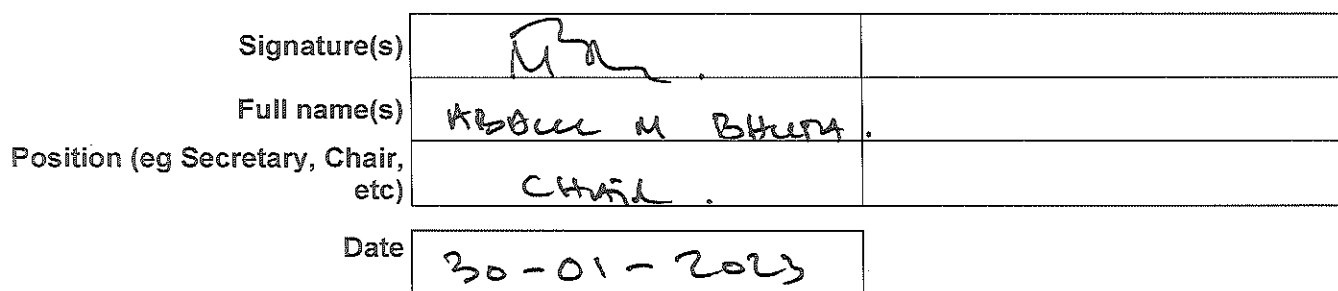 Signature(s)
Full name(s) ABDUL M BHUTA.
Position (eg Secretary, Chair,
etc) CHAIR.
Date 30-01-2023